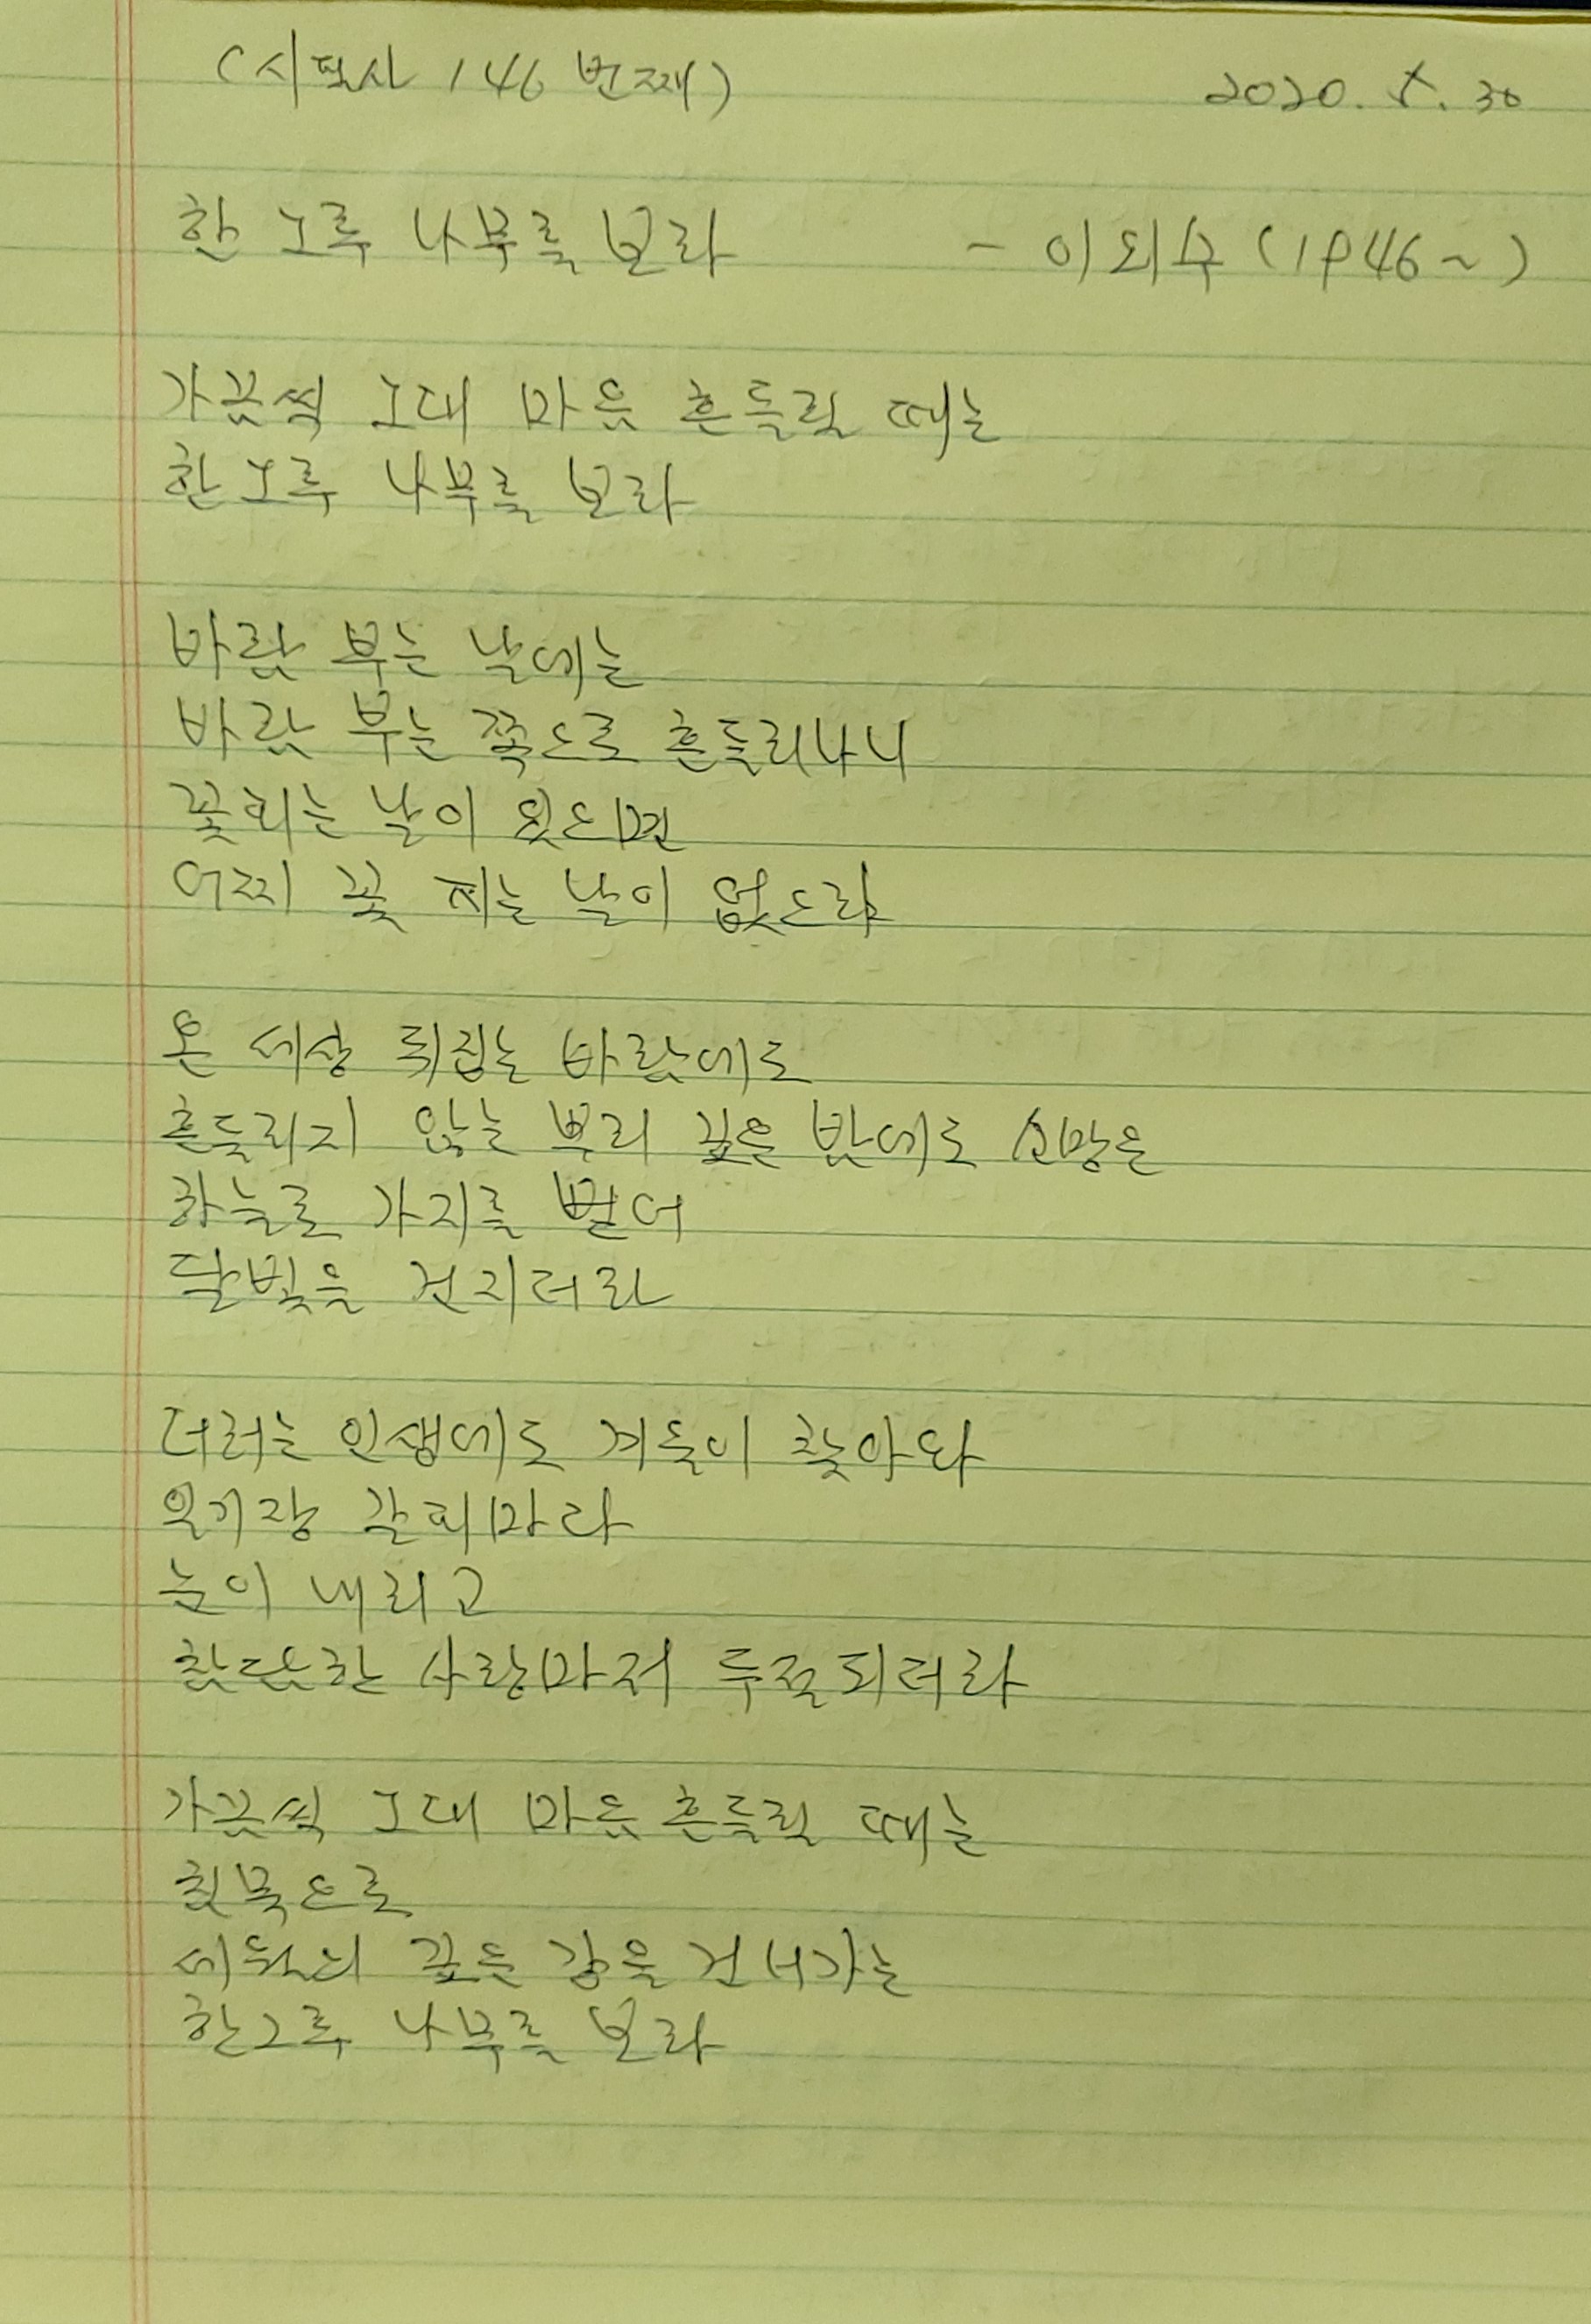 (시필사 146 번째) 2020. 5. 30
한 그루 나무를 보라 - 이외수 (1946~)
가끔씩 그대 마음 흔들릴 때는
한 그루 나무를 보라
바람 부는 날에는
바람 부는 쪽으로 흔들리나니
꽃피는 날이 있다면
어찌 꽃 지는 날이 없으랴
온 세상 뒤집는 바람에도
흔들리지 않는 뿌리 깊은 밤에도 소망은
하늘로 가지를 뻗어
달빛을 건지더라
더러는 인생에도 겨울이 찾아와
일기장 갈피마다
눈이 내리고
참담한 사랑마저 두절되더라
가끔씩 그대 마음 흔들릴 때는
침묵으로
세월의 깊은 강을 건너가는
한그루 나무를 보라